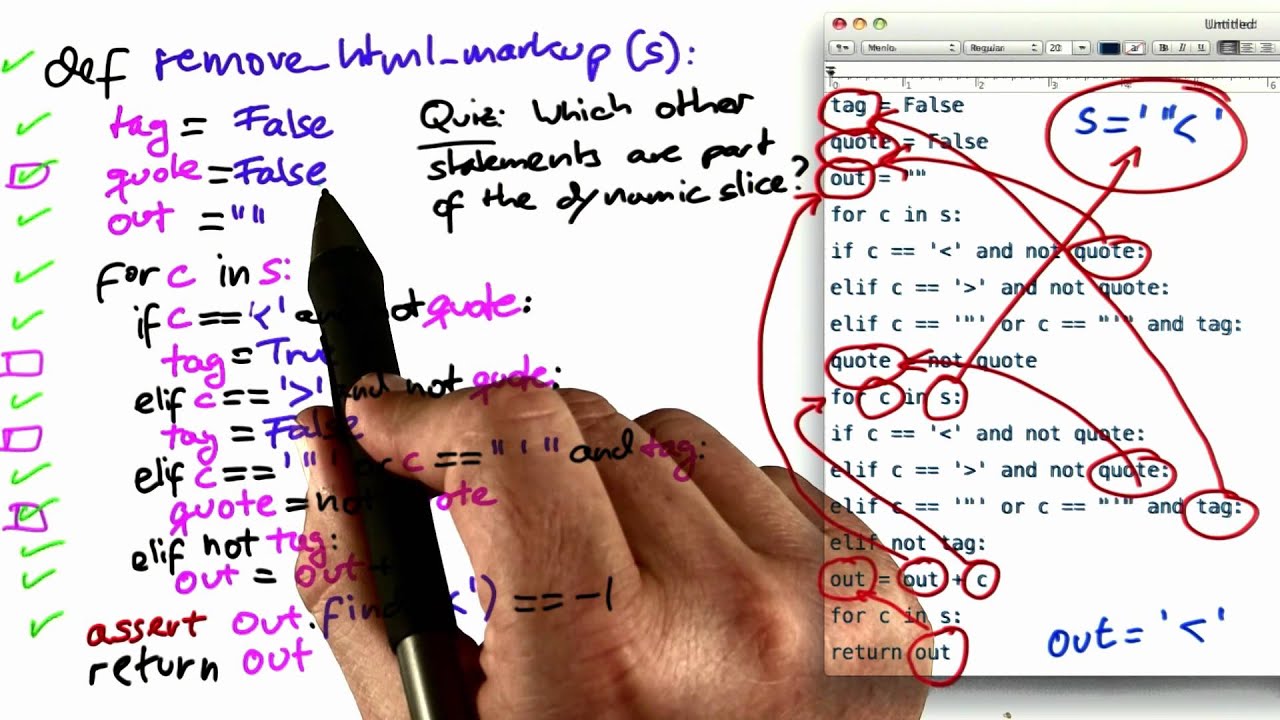 def remove_html_markup (s):
tag = False
quote = False
out = ""
for c in s:
if c == '<' and not quote:
tag = True
elif c == '>' and not quote:
tag = False
elif c == '"' or c == "'" and tag:
quote = not quote
elif not tag:
out = out +
assert out.find('<') == -1
return out
Quiz: Which other
statements are part
of the dynamic slice?
Untitled
Menlo Regular 20 B I U
0 1 2 3 4 5 6
tag = False
quote = False
out = ""
for c in s:
if c == '<' and not quote:
elif c == '>' and not quote:
elif c == '"' or c == "'" and tag:
quote = not quote
for c in s:
if c == '<' and not quote:
elif c == '>' and not quote:
elif c == '"' or c == "'" and tag:
elif not tag:
out = out + c
for c in s:
return out
s='"<'
out='<'